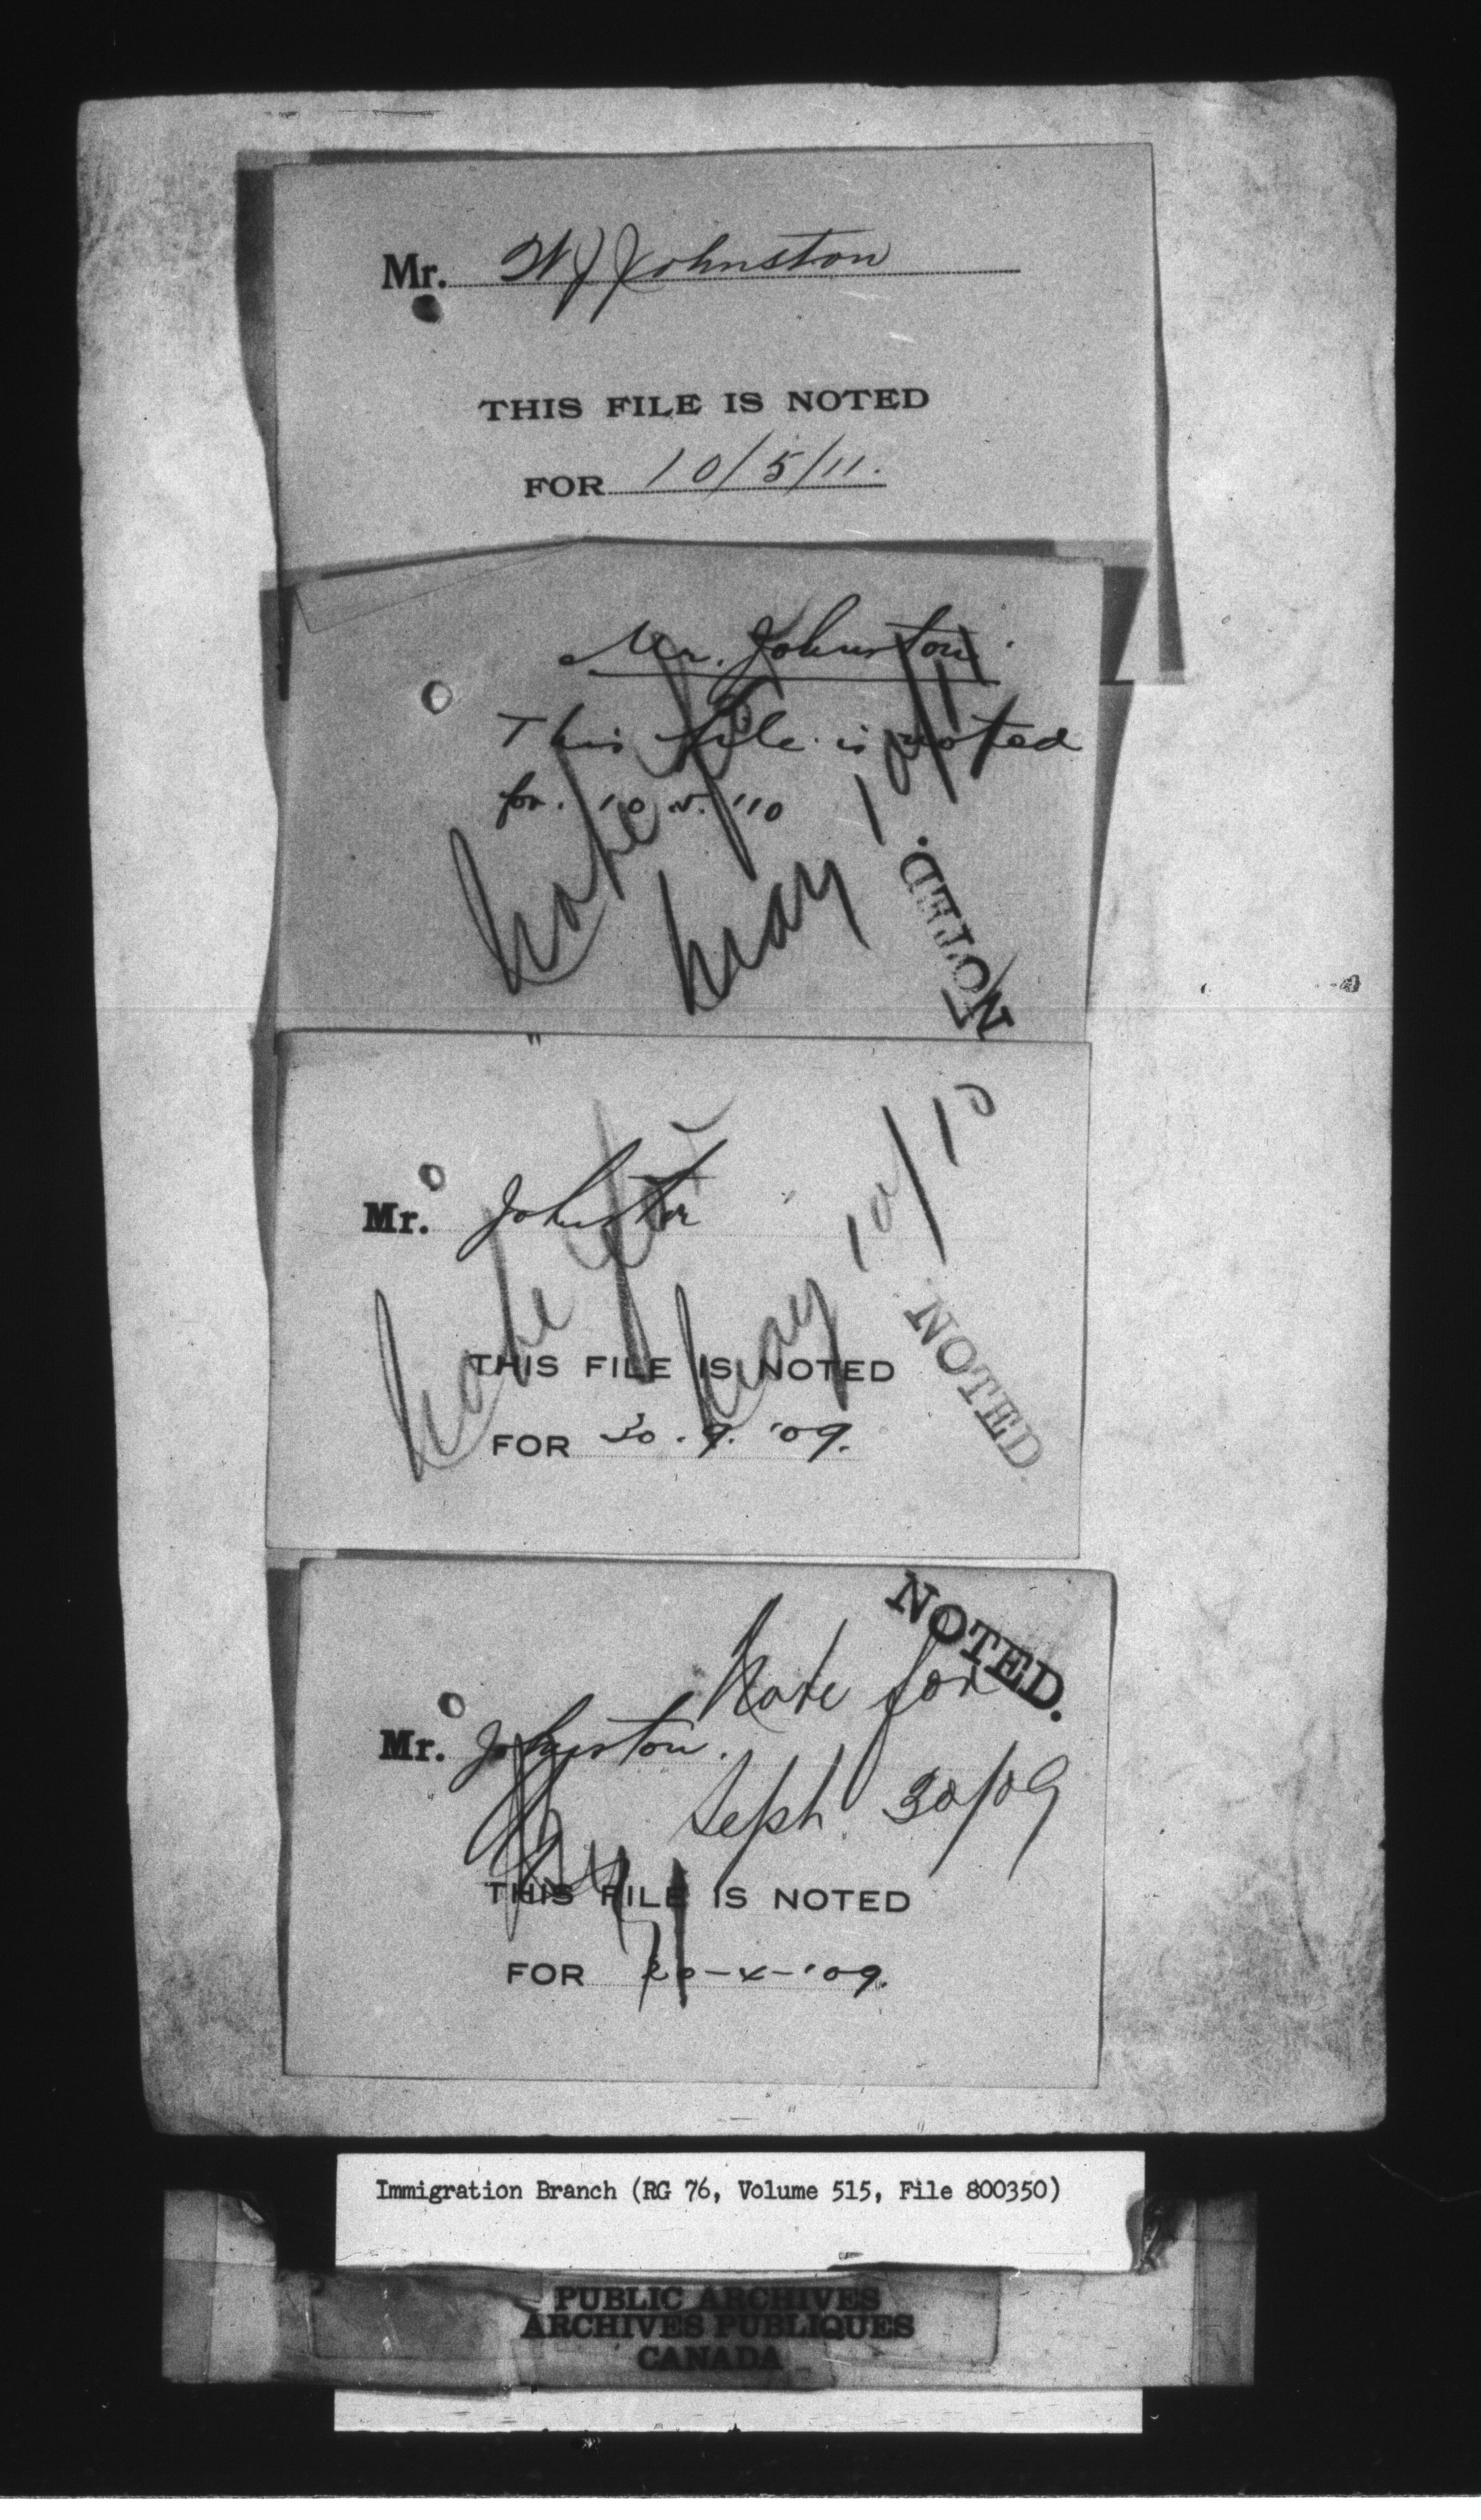 Mr. W J Johnston
THIS FILE IS NOTED
FOR 10/5/11.
Mr. Johnston.
This file is noted
for. 10.5.'10
Note for
May 10/11
NOTED.
Mr. Johnston
Note for
May 10/10
THIS FILE IS NOTED
FOR 30.9.'09.
NOTED.
NOTED.
Note for
Mr. Johnston.
Sept. 30/09
THIS FILE IS NOTED
FOR 20-4-'09.
Immigration Branch (RG 76, Volume 515, File 800350)
PUBLIC ARCHIVES
ARCHIVES PUBLIQUES
CANADA